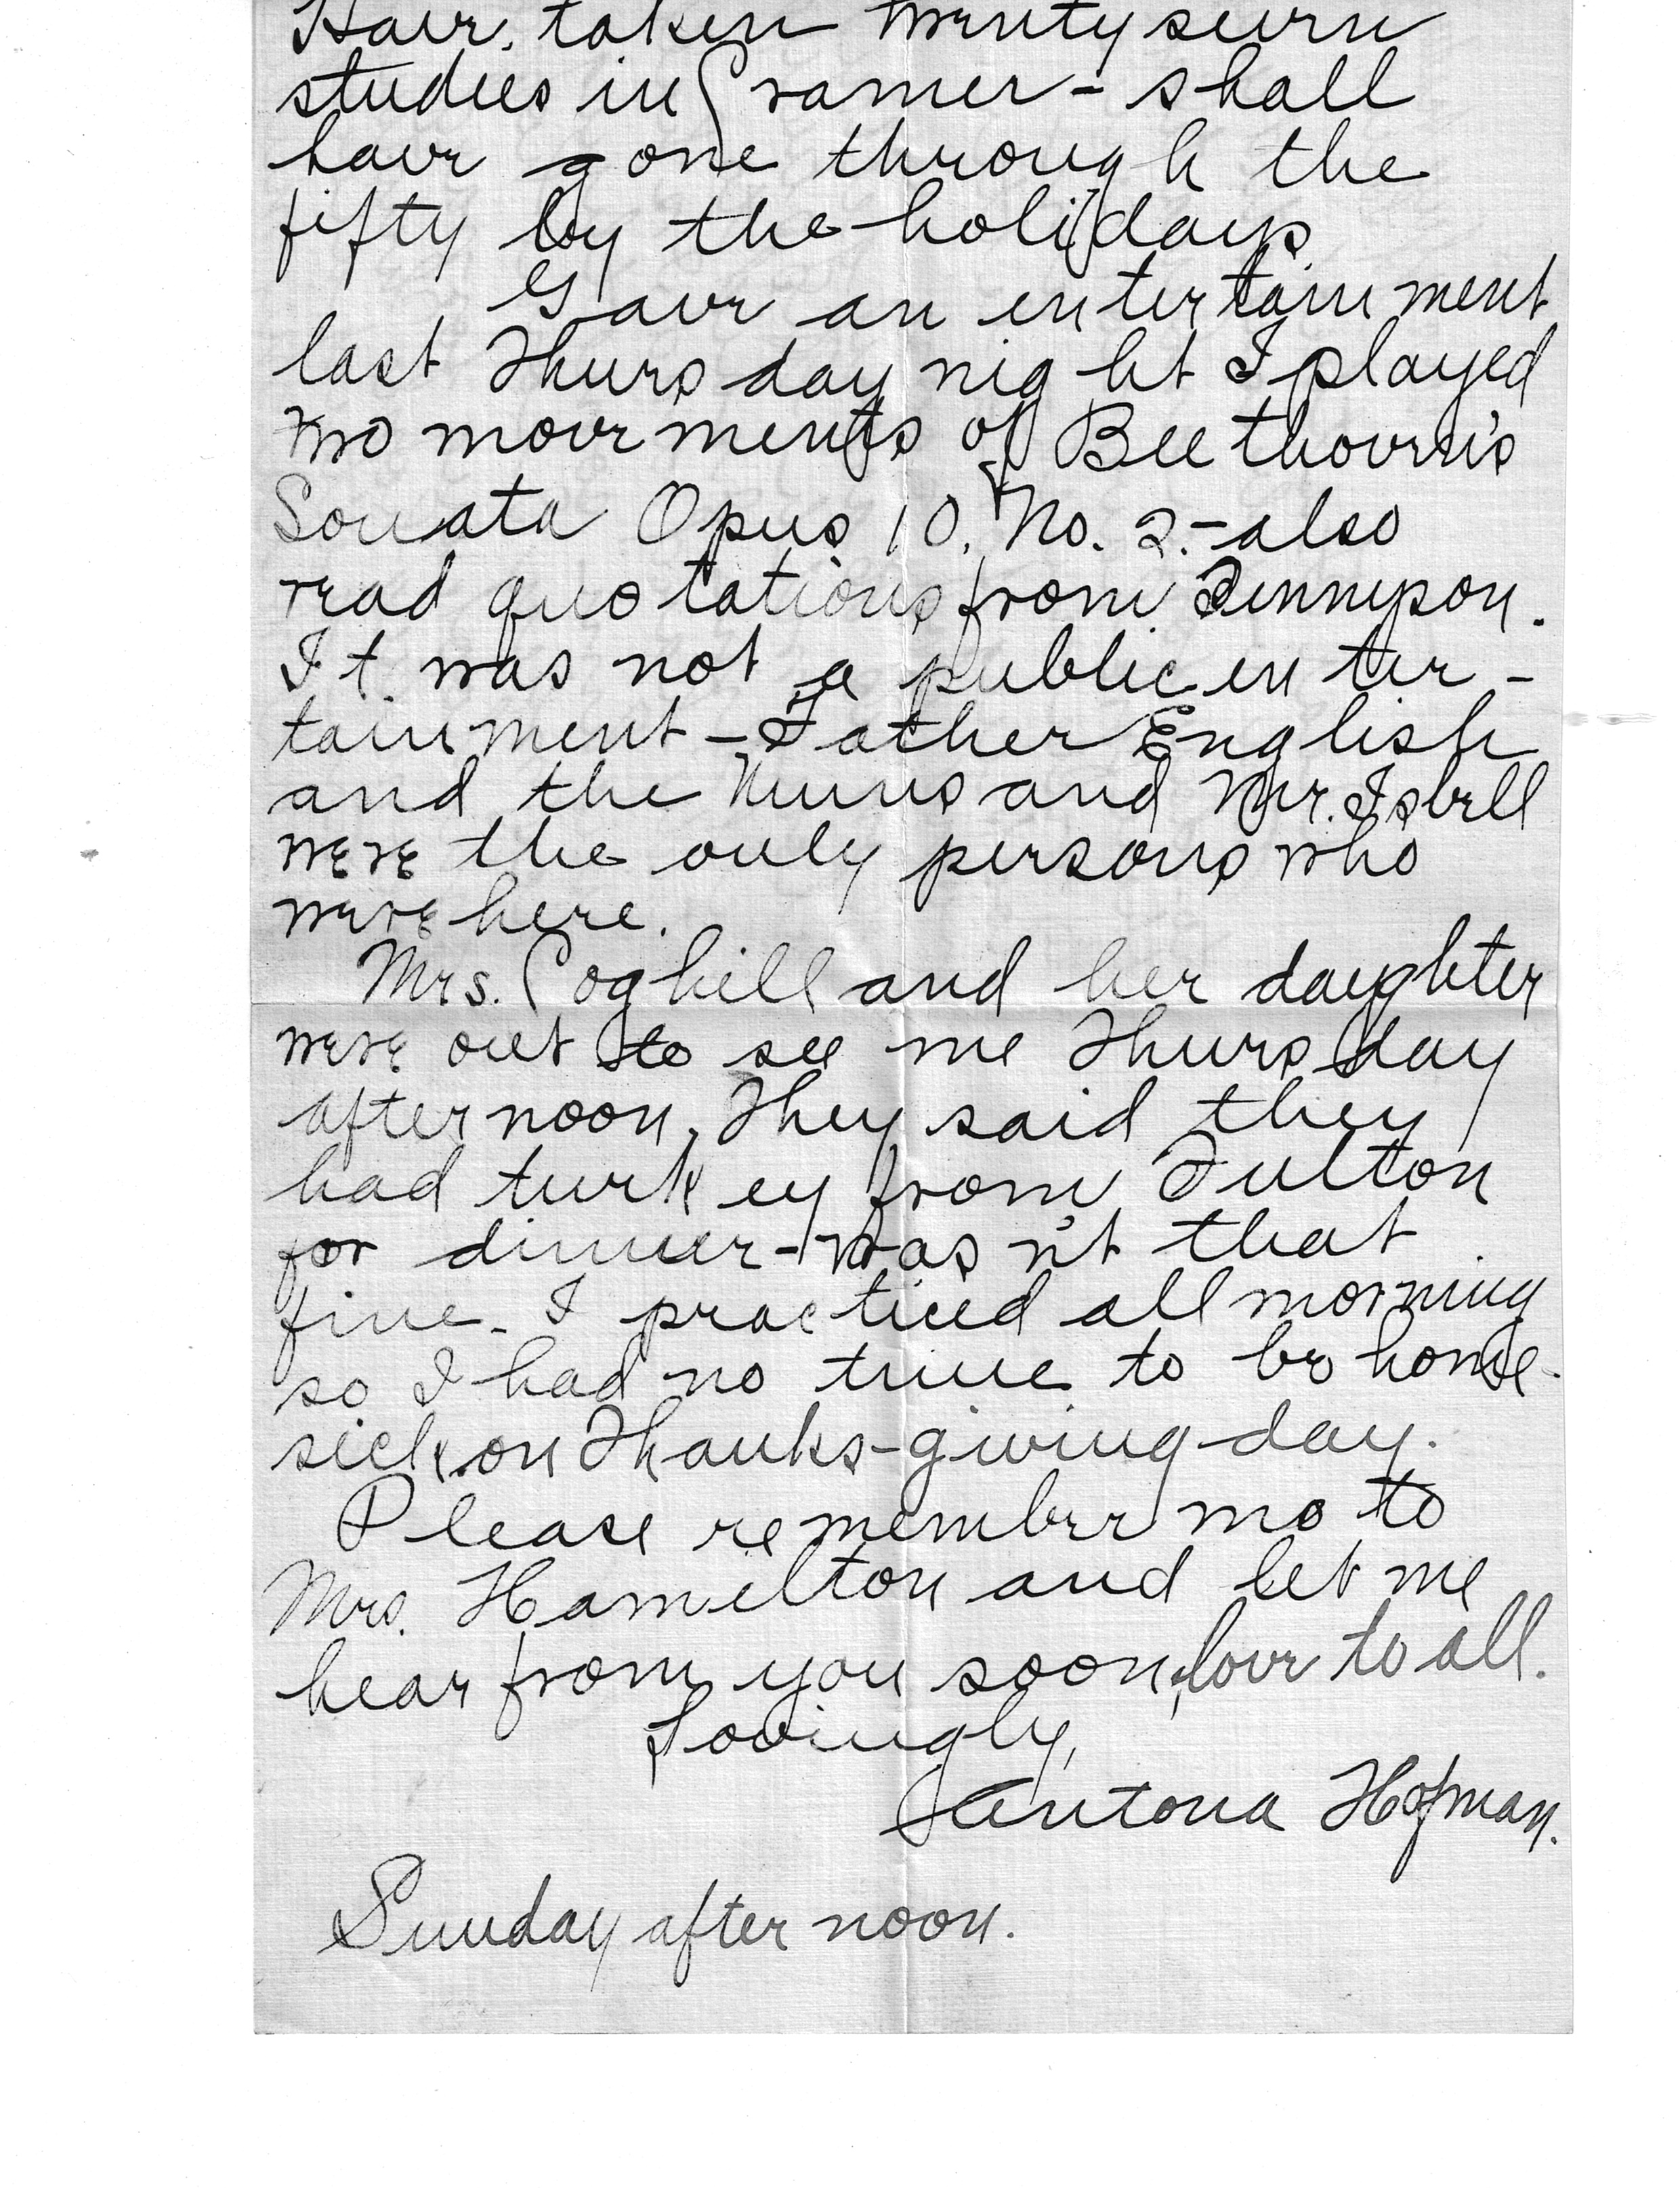 Have, taken twenty seven
studies in Cramer - shall
have gone through the
fifty by the holidays
Gave an entertainment
last Thursday night I played
two movements of Beethoven's
Sonata Opus 10. No. 2. - also
read quotations from Tennyson.
It was not a public enter-
tainment - Father English
and the Nuns and Mr. Isbell
were the only persons who
were here.
Mrs. Coghill and her daughter
were out to see me Thursday
afternoon. They said they
had turkey from Fulton
for dinner - wasn't that
fine. I practiced all morning
so I had no time to be home-
sick on Thanks-giving-day.
Please remember me to
Mrs. Hamilton and let me
hear from you soon, love to all.
Lovingly,
Antona Hofman.
Sunday afternoon.